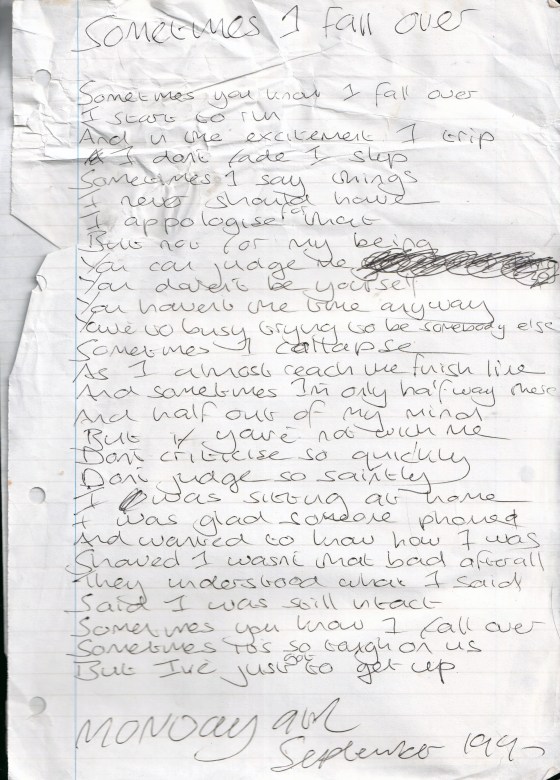 Sometimes I fall over
Sometimes you know I fall over
I start to run
And in the excitement I trip
I dont fade I stop
Sometimes I say things
I never should have
I appologise for that
But not for my being
You can judge me
You daren't be yourself
You havent the time anyway
Youre to busy trying to be somebody else
Sometimes I collapse
As I almost reach the finish line
And sometimes Im only halfway there
And half out of my mind
But if youre not with me
Dont criticise so quickly
Dont judge so saintly
I was sitting at home
I was glad someone phoned
And wanted to know how I was
Showed I wasnt that bad afterall
They understood what I said
Said I was still intact
Sometimes you know I fall over
Sometimes its so tough on us
But Ive just got to get up
MONDAY
September 199